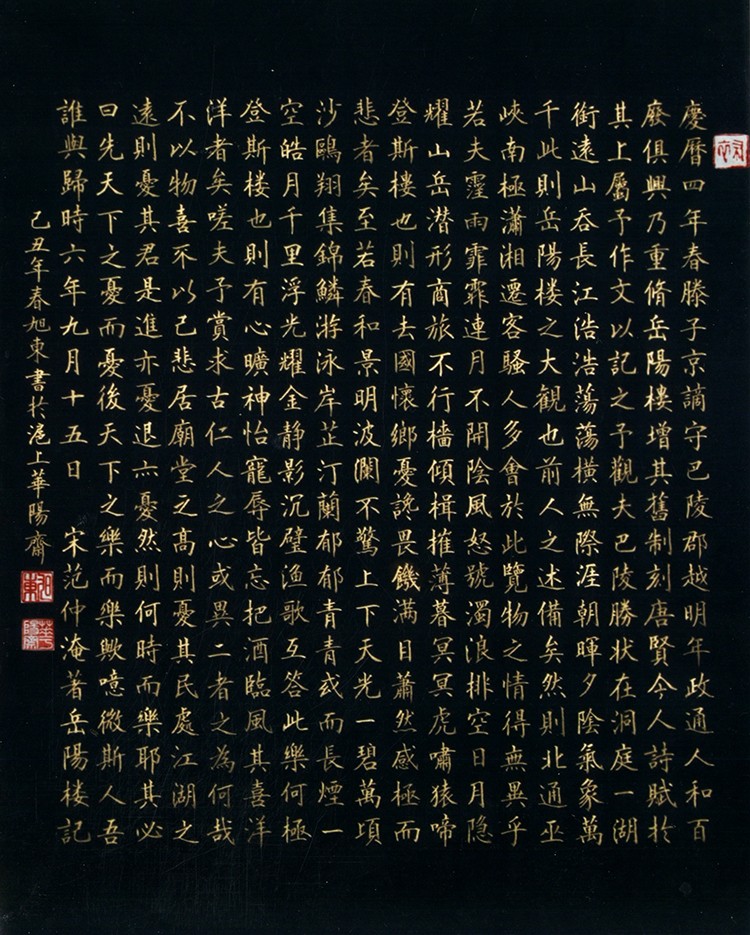 慶曆四年春滕子京謫守巴陵郡越明年政通人和百
廢俱興乃重脩岳陽樓增其舊制刻唐賢今人詩賦於
其上屬予作文以記之予觀夫巴陵勝狀在洞庭一湖
銜遠山吞長江浩浩蕩蕩橫無際涯朝暉夕陰氣象萬
千此則岳陽楼之大觀也前人之述備矣然則北通巫
峽南極瀟湘遷客騷人多會於此覽物之情得無異乎
若夫霪雨霏霏連月不開陰風怒號濁浪排空日月隐
耀山岳潜形商旅不行檣傾楫摧薄暮冥冥虎嘯猿啼
登斯樓也則有去國懷鄉憂讒畏饑满目蕭然感極而
悲者矣至若春和景明波闌不驚上下天光一碧萬頃
沙鷗翔集錦鱗游泳岸芷汀蘭郁郁青青或而長煙一
空皓月千里浮光耀金静影沉璧渔歌互答此樂何極
登斯楼也則有心曠神怡寵辱皆忘把酒臨風其喜洋
洋者矣嗟夫予賞求古仁人之心或異二者之為何哉
不以物喜不以己悲居廟堂之高則憂其民處江湖之
遠則憂其君是進亦憂退亦憂然則何時而樂耶其必
曰先天下之憂而憂後天下之樂而樂歟噫微斯人吾
誰與歸時六年九月十五日 宋范仲淹著岳陽楼記
己丑年春旭東書於滬上華陽齋
旭東